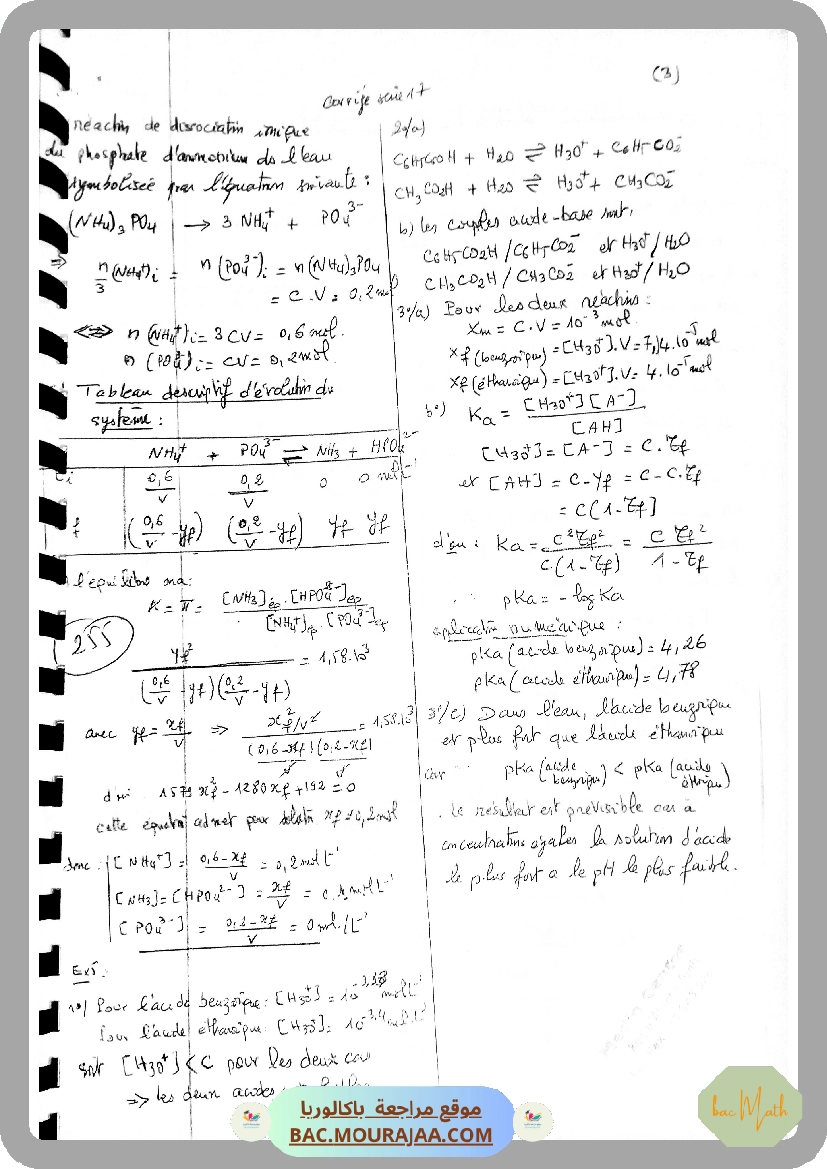 (3)
Corrigé serie 17
réaction de dissociation ionique
du phosphate d'ammonium ds l'eau
symbolisée par l'équation suivante :
(NH4)3 PO4 → 3 NH4+ + PO4 3-
⇒ n/3 (NH4+)i = n (PO4 3-)i = n (NH4)3PO4
= C.V = 0,2 mol
⟺ n (NH4+)i = 3CV = 0,6 mol.
n (PO4 3-)i = CV = 0,2 mol
Tableau descriptif d'évolution du
système :
NH4+ + PO4 3- ⇌ NH3 + HPO4 2-
0,6/V 0,2/V 0 0 mol L-1
f (0,6/V - yf) (0,2/V - yf) yf yf
l'équilibre ona:
K = π = [NH3]ép . [HPO4 2-]ép / [NH4+]ép . [PO4 3-]ép
255
yf² / (0,6/V - yf)(0,2/V - yf) = 1,58.10³
avec yf = xf/V ⇒ xf²/V² / (0,6-xf)/V (0,2-xf)/V = 1,58.10³
d'où 1579 xf² - 1280 xf + 192 = 0
cette équation admet pour solution xf = 0,2 mol
donc : [NH4+] = 0,6-xf / V = 0,2 mol L-1
[NH3] = [HPO4 2-] = xf/V = mol L-1
[PO4 3-] = 0,2-xf / V = 0 mol.L-1
Ex5:
1°/ Pour l'acide benzoïque : [H3O+] = mol L-1
Pour l'acide éthanoïque : [H3O+] = 10-3,4 mol.L-1
soit [H3O+] < C pour les deux cas
⇒ les deux acides
2°/a)
C6H5COOH + H2O ⇌ H3O+ + C6H5CO2-
CH3CO2H + H2O ⇌ H3O+ + CH3CO2-
b) les couples acide-base sont,
C6H5CO2H / C6H5CO2- et H3O+ / H2O
CH3CO2H / CH3CO2- et H3O+ / H2O
3°/a) Pour les deux réactions :
xm = C.V = 10-3 mol
xf (benzoïque) = [H3O+].V = 7,14.10-5 mol
xf (éthanoïque) = [H3O+].V = 4.10-5 mol
b°) Ka = [H3O+][A-] / [AH]
[H3O+] = [A-] = C.τf
et [AH] = C-yf = C-C.τf
= C(1-τf]
d'où : Ka = C²τf² / C.(1-τf) = Cτf² / 1-τf
pKa = -log Ka
application numérique :
pKa (acide benzoïque) = 4,26
pKa (acide éthanoïque) = 4,78
3°/c) Dans l'eau, l'acide benzoïque
est plus fort que l'acide éthanoïque
Car pKa (acide benzoïque) < pKa (acide
. Le résultat est prévisible car à
concentrations égales la solution d'acide
le plus fort a le pH le plus faible.
موقع مراجعة باكالوريا
BAC.MOURAJAA.COM
bac Math